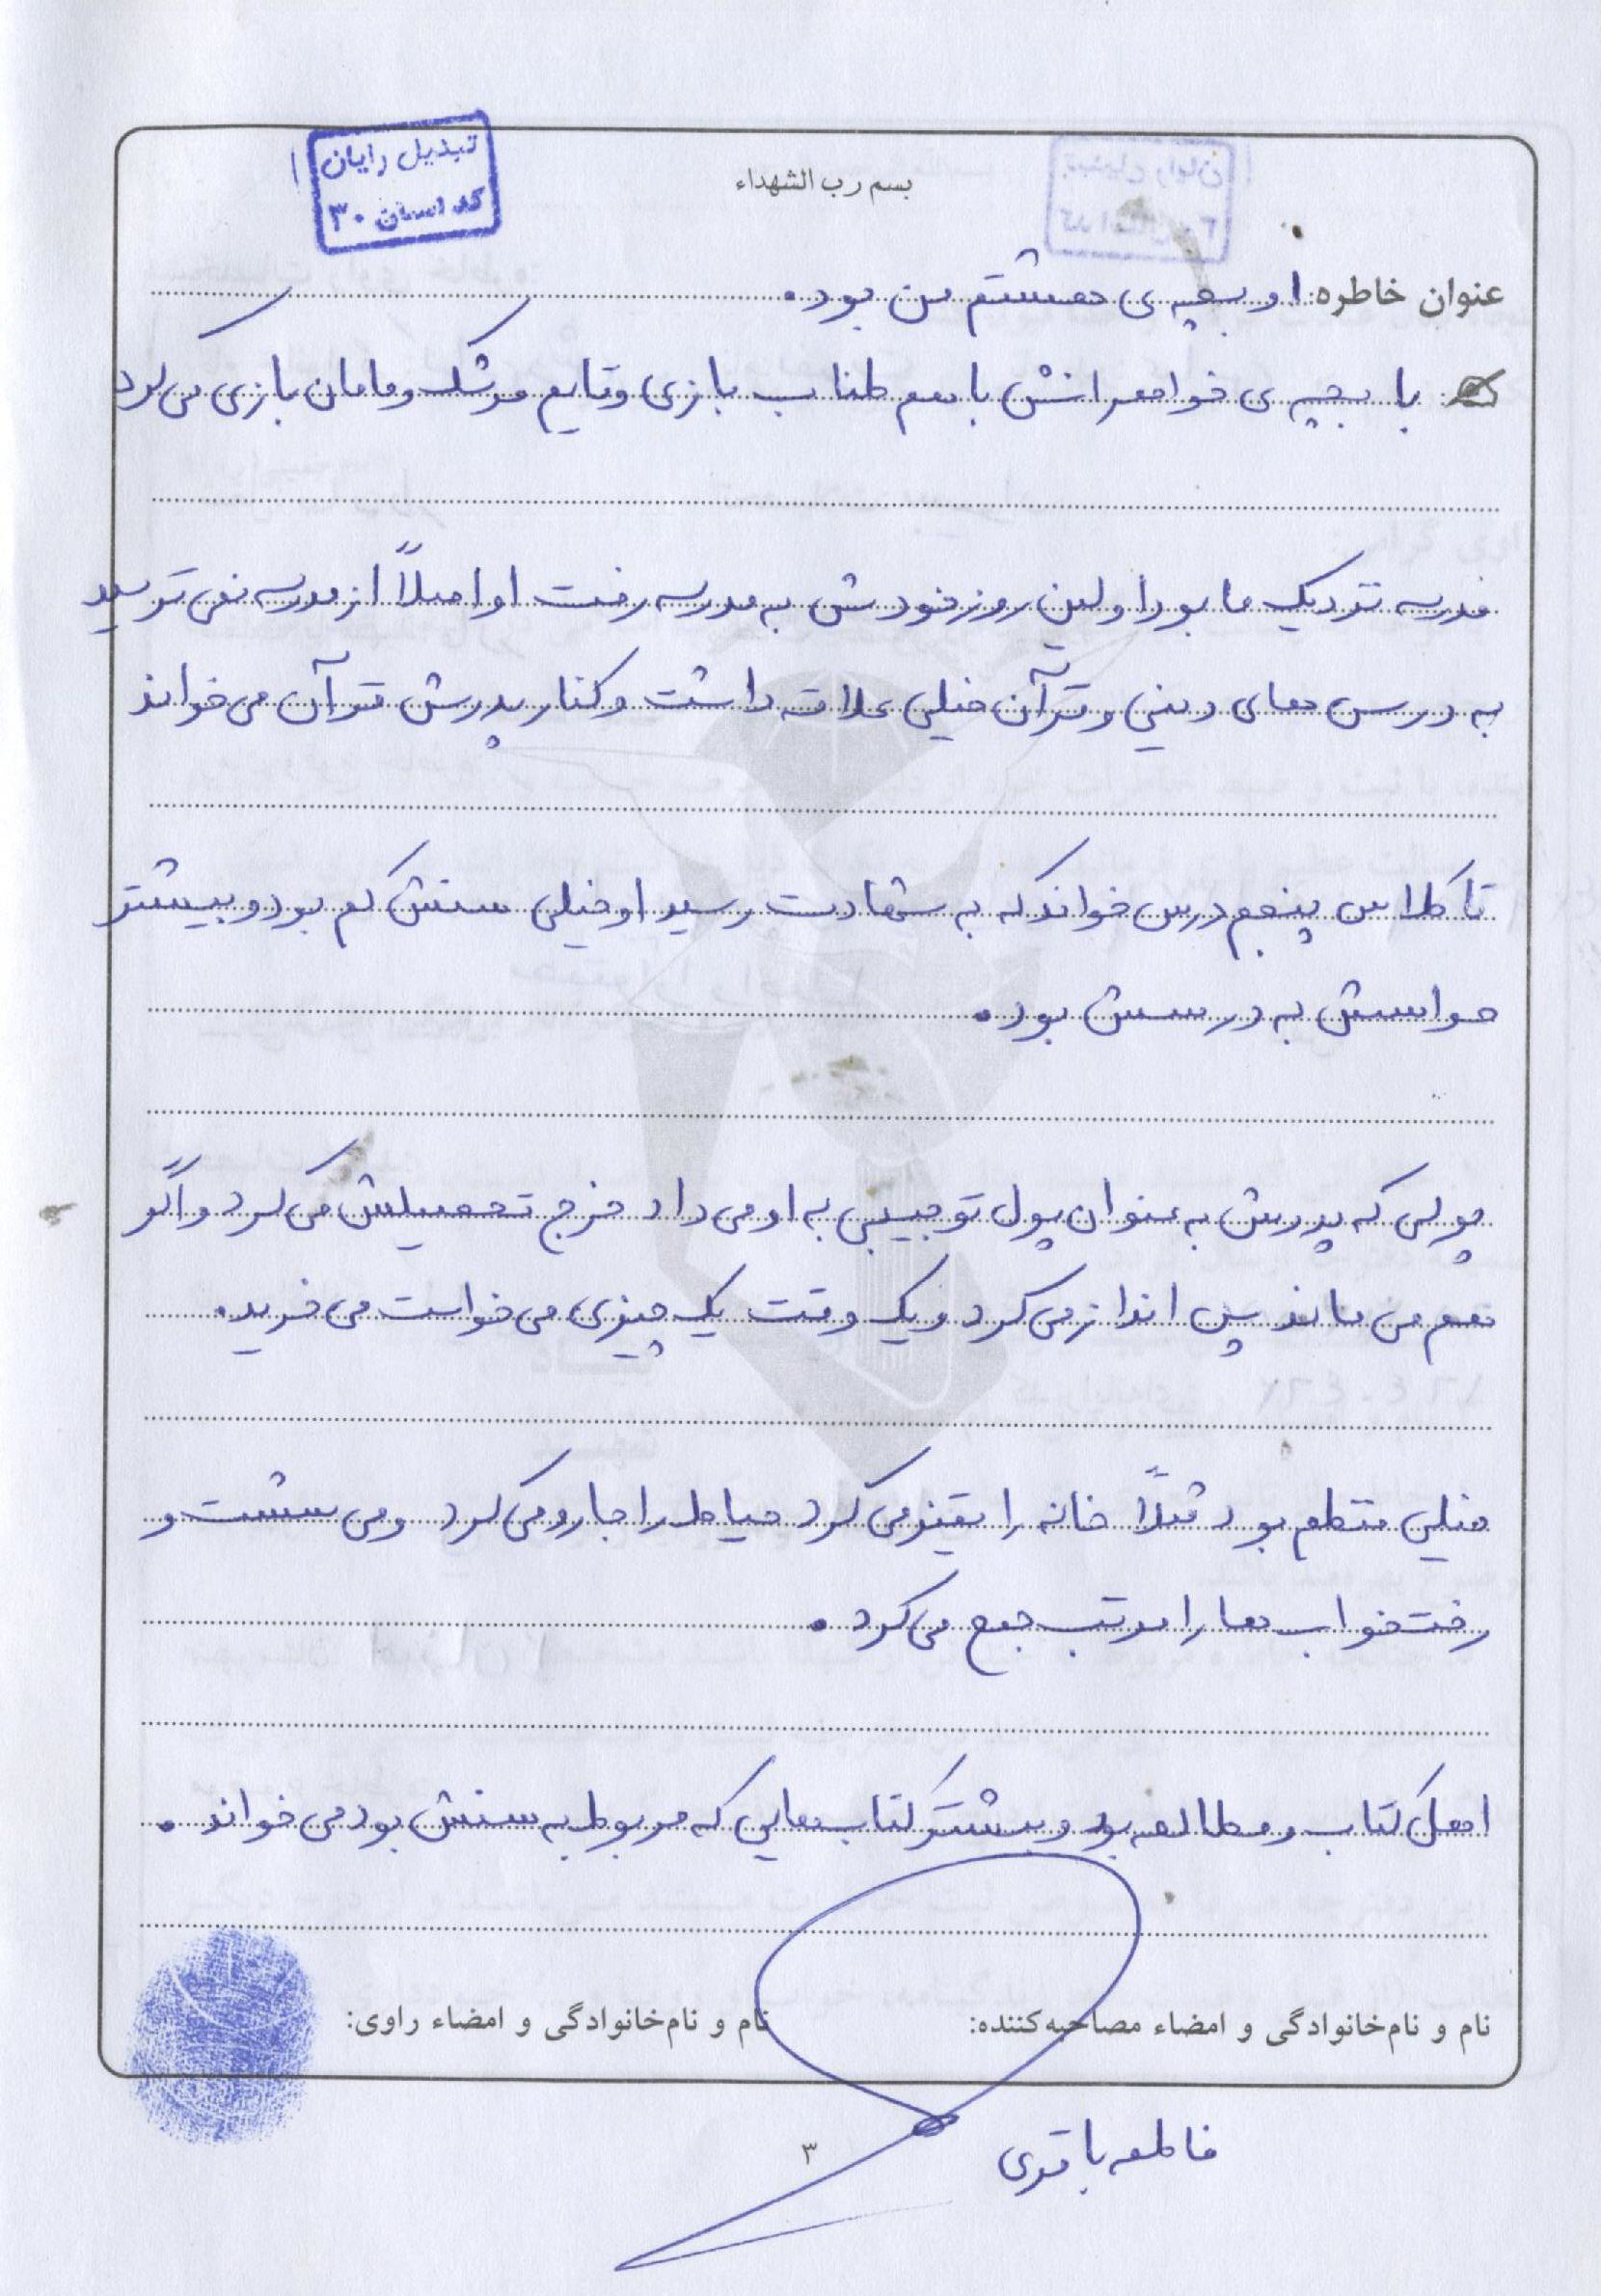 تبدیل رایان
کد استان ۳۰
بسم رب الشهداء
عنوان خاطره: او بچه‌ی هشتم من بود.
با بچه‌ی خواهرانش باهم طناب بازی و قایم موشک و مامان بازی می‌کرد
مدرسه نزدیک ما بود اولین روز خودش به مدرسه رفت او اصلاً از مدرسه نمی‌ترسید
به درس‌های دینی و قرآن خیلی علاقه داشت و کنار پدرش قرآن می‌خواند
تا کلاس پنجم درس خواند که به شهادت رسید او خیلی سنش کم بود و بیشتر
حواسش به درسش بود.
پولی که پدرش به عنوان پول توجیبی به او می‌داد خرج تحصیلش می‌کرد و اگر
هم می‌ماند پس انداز می‌کرد و یک وقت یک چیزی می‌خواست می‌خرید.
خیلی منظم بود مثلاً خانه را تمیز می‌کرد حیاط را جارو می‌کرد و می‌شست و
رخت‌خواب‌ها را مرتب جمع می‌کرد.
اهل کتاب و مطالعه بود و بیشتر کتاب‌هایی که مربوط به سنش بود می‌خواند.
نام و نام‌خانوادگی و امضاء مصاحبه‌کننده: نام و نام‌خانوادگی و امضاء راوی:
فاطمه باقری
۳